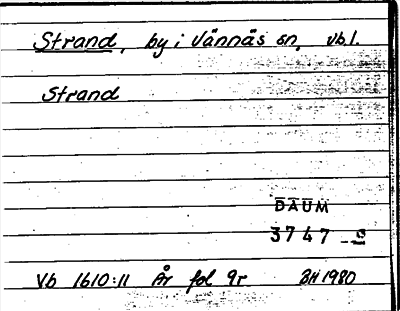 Strand, by i Vännäs sn, vb.l.
Strand
DAUM
3747
Vb 1610:11 År fol 9r BH 1980